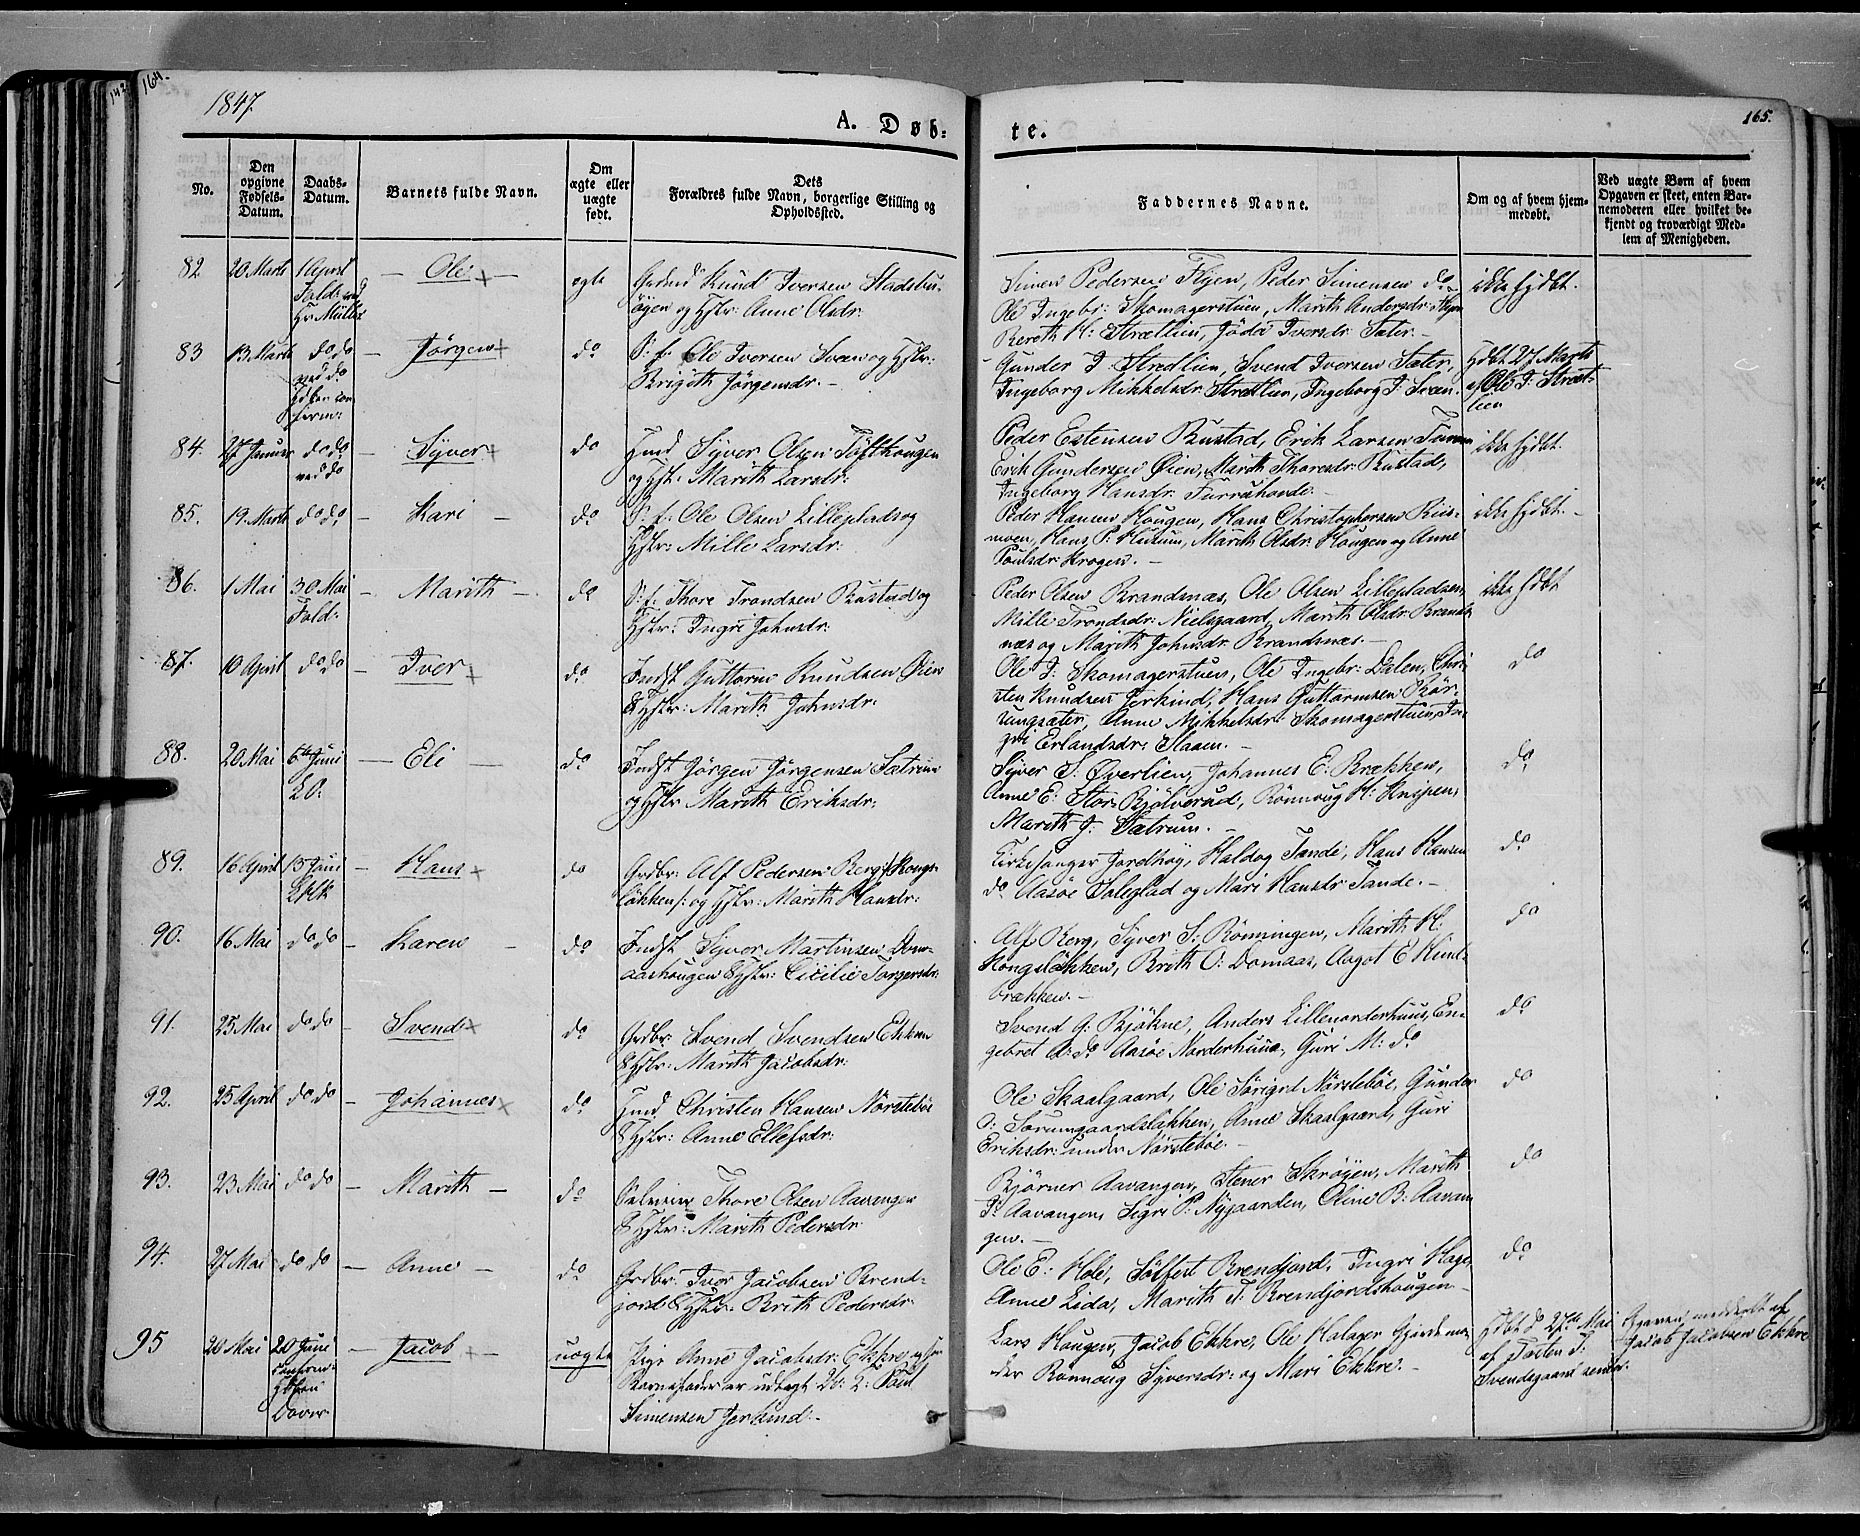 164.
1847.
A. Døb:
No.
Den opgivne Fødsels-Datum.
Daabs-Datum.
Barnets fulde Navn.
Om ægte eller uægte født.
Dets
Forældres fulde Navn, borgerlige Stilling og
Opholdssted.
165.
te.
Faddernes Navne.
Om og af hvem hjem-
medøbt.
Ved uægte Børn af hvem
Opgaven er skeet, enten Bar-
nemoderen eller hvilket be-
kjendt og troværdigt Med-
lem af Menigheden.
82 20 Marts 1 April — Ole — ægte
Knud Iversen Stadsbu-
øyen og Hstr: Anne Olsdr:
Simen Pedersen Flyen, Peder Simensen do
Ole Ingebr: Skomagerstuen, Marith Andersdr: Flyen
Bereth H: Strætlien, Iversdr: Sæter. —
ikke hjdbt.
83 13 Marts do do — Jørgen do
S: f: Ole Iversen Sveen og Hstr:
Brigith Jørgensdr. —
Gunder I: Strætlien, Svend Iversen Sæter,
Ingeborg Mikkelsdr: Strætlien, Ingeborg I: Sveen.
hjdbt 27 Marts
af Ole I: Stræt-
lien
84. 27 Januar do do ved do — Syver do
Hmd Syver Olsen Tofthougen
og Hstr: Marith Larsdr:
Peder Estensen Rustad, Erik Larsen
Erik Gundersen Øien, Marith Thoresdr: Rustad,
Ingeborg Hansdr: Furruhovde. —
ikke hjdbt.
85. 19 Marts do do — Kari — do
S: f: Ole Olsen Lilleplads og
Hstr: Mille Larsdr:
Peder Hansen Hougen, Hans Christophersen Rius-
moen, Hans P: Husum, Marith Olsdr: Hougen og Anne
Poulsdr: Krogen. —
ikke hjdbt. —
86. 1 Mai 30 Mai — Marith — do
S: f: Thore Trondsen Rustad og
Hstr: Ingri Johnsdr:
Peder Olsen Brandsnæs, Ole Olsen Lillepladsen,
Mille Trondsdr: Nielsgaard, Marith Olsdr: Brands-
næs og Marith Johnsdr: Brandsnæs. —
ikke hjdbt
87. 10 April do do — Iver do
Indst Guttorm Knudsen Øien
& Hstr: Marith Johnsdr:
Ole I: Skomagerstuen, Ole Ingebr: Dalen, Chri-
sten Knudsen Jerkind, Hans Guttormsen Kør-
ungsæter, Anne Mikkelsdr: Skomagerstuen, In-
gri Erlandsdr: Slaaen. —
do
88. 20 Mai 6te Juni — Eli — do
Indst Jørgen Jørgensen Sætrum
og Hstr Marith Eriksdr:
Syver S: Øverlien, Johannes E: Brækken,
Anne E: Stor Bjølverud, Rønnoug H: Knipen,
Marith J: Sætrum. —
do
89. 16 April 13 Juni — Hans do
Grdbr: Alf Pedersen Berg /: Kongs-
løkken :/ og Hstr: Marith Hansdr:
Kirkesanger Jordhøy, Haldog Tande, Hans Hansen
do Aasøe Soleglad og Mari Hansdr Tande. —
do
90. 16 Mai do do — Karen — do
Indst Syver Martinsen Dom-
aashougen & Hstr: Cicilie Torgersdr:
Alf Berg, Syver S: Rønningen, Marith H:
Kongsløkken, Brith O: Domaas, Aagot E:
brækken. —
do
91. 25 Mai do do — Svend do
Grdbr: Svend Svendsen Ekkre
& Hstr: Marith Jacobsdr:
Svend G: Bjøkne, Anders Lillenorderhuus, En-
gebret A: do Aasøe Norderhuus, Guri M: do
do
92. 25 April do do — Johannes do
Hmd Christen Hansen Nørstebøe
& Hstr: Anne Ellefsdr:
Ole Skaalgaard, Ole Nørstebøe, Gunder
O: Sørumgaardsløkken, Anne Skaalgaard, Guri
Eriksdr: under Nørstebøe. —
do
93. 23 Mai do do — Marith — do
Thore Olsen Aavangen
& Hstr: Marith Pedersdr
Bjørner Aavangen, Stener Skrøyen, Marith
P: Aavangen, Sigri P: Nygaarden, Oline B: Aavan
gen. —
do
94. 27 Mai do do — Anne — do
Grdbr: Iver Jacobsen Brend-
jord & Hstr: Brith Pedersdr:
Ole E: Hole, Sølfest Brendjord, Ingri Hage,
Anne Lida, Marith T: Brendjordshougen —
do
95 20 Mai 20 Juni — Jacob — uægte
Dover
Pige Anne Jacobsdr: Ekkre og som
Barnefader er udlagt Poul
Simensen Jerkind. —
Lars Hougen, Jacob Ekkre, Ole
Rønnoug Syversdr: og Mari Ekkre. —
hjdbt d 27de Mai
af
Svendsgaard
Opgaven meddelt af
Jacob Jacobsen Ekkre